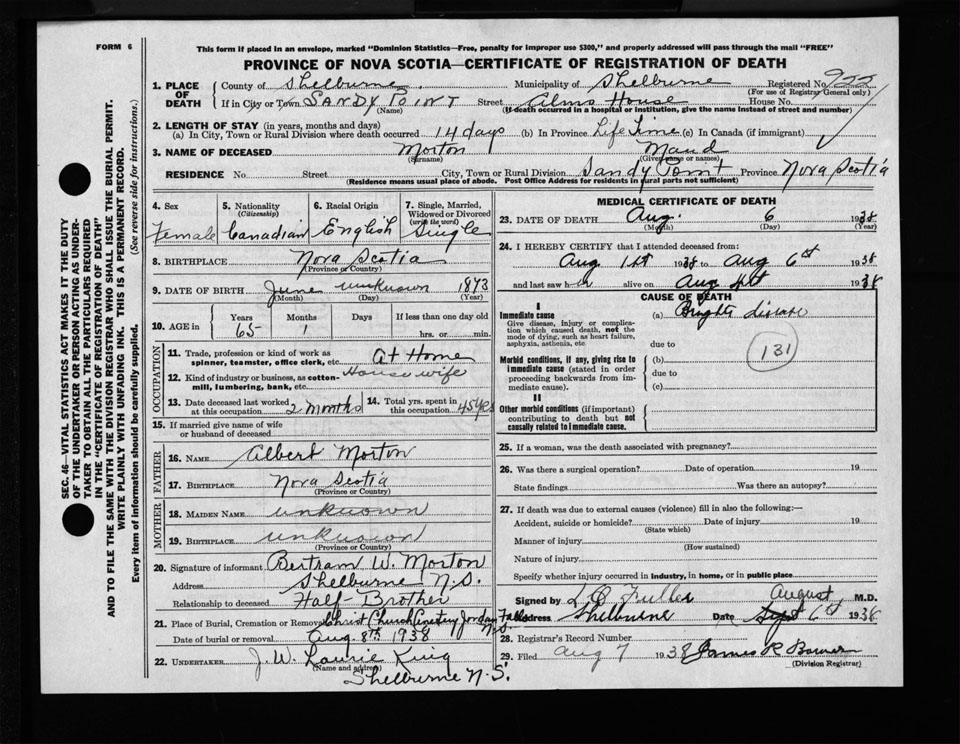 FORM 6
This form if placed in an envelope, marked "Dominion Statistics—Free, penalty for improper use $300," and properly addressed will pass through the mail "FREE"
PROVINCE OF NOVA SCOTIA—CERTIFICATE OF REGISTRATION OF DEATH
SEC. 46—VITAL STATISTICS ACT MAKES IT THE DUTY
OF THE UNDERTAKER OR PERSON ACTING AS UNDER-
TAKER TO OBTAIN ALL THE PARTICULARS REQUIRED
IN THE "CERTIFICATE OF REGISTRATION OF DEATH"
AND TO FILE THE SAME WITH THE DIVISION REGISTRAR WHO SHALL ISSUE THE BURIAL PERMIT.
WRITE PLAINLY WITH UNFADING INK. THIS IS A PERMANENT RECORD.
Every item of information should be carefully supplied. (See reverse side for instructions.)
1. PLACE OF DEATH
County of Shelburne. Municipality of Shelburne Registered No. 922
(For use of Registrar General only)
If in City or Town SANDY POINT Street Alms House House No.
(Name) (If death occurred in a hospital or institution, give the name instead of street and number)
2. LENGTH OF STAY (in years, months and days)
(a) In City, Town or Rural Division where death occurred 14 days (b) In Province Life Time (c) In Canada (if immigrant)
3. NAME OF DECEASED Morton Maud
(Surname) (Given name or names)
RESIDENCE No. Street City, Town or Rural Division Sandy Point Province Nova Scotia
(Residence means usual place of abode. Post Office Address for residents in rural parts not sufficient)
4. Sex Female
5. Nationality (Citizenship) Canadian
6. Racial Origin English
7. Single, Married, Widowed or Divorced (write the word) Single
8. BIRTHPLACE Nova Scotia
(Province or Country)
9. DATE OF BIRTH June unknown 1873
(Month) (Day) (Year)
10. AGE in Years Months Days If less than one day old
65 1 hrs. or min.
OCCUPATION
11. Trade, profession or kind of work as spinner, teamster, office clerk, etc. At Home
12. Kind of industry or business, as cotton-mill, lumbering, bank, etc. House wife
13. Date deceased last worked at this occupation 2 months
14. Total yrs. spent in this occupation 45 yrs
15. If married give name of wife or husband of deceased
FATHER
16. NAME Albert Morton
17. BIRTHPLACE Nova Scotia
(Province or Country)
MOTHER
18. MAIDEN NAME unknown
19. BIRTHPLACE unknown
(Province or Country)
20. Signature of informant Bertram W. Morton
Address Shelburne N.S.
Relationship to deceased Half-Brother
21. Place of Burial, Cremation or Removal Christ Church Cemetery Jordan Falls N.S.
Date of burial or removal Aug. 8th 1938
22. UNDERTAKER J. W. Laurie King
(Name and address)
Shelburne N.S.
MEDICAL CERTIFICATE OF DEATH
23. DATE OF DEATH Aug. 6 1938
(Month) (Day) (Year)
24. I HEREBY CERTIFY that I attended deceased from:
Aug 1st 1938 to Aug 6st 1938
and last saw h er alive on Aug 1938
CAUSE OF DEATH
I
Immediate cause (a) Brights disease
Give disease, injury or complication which caused death, not the mode of dying, such as heart failure, asphyxia, asthenia, etc.
due to
131
Morbid conditions, if any, giving rise to immediate cause (stated in order proceeding backwards from immediate cause).
(b)
due to
(c)
II
Other morbid conditions (if important) contributing to death but not causally related to immediate cause.
25. If a woman, was the death associated with pregnancy?
26. Was there a surgical operation? Date of operation 19
State findings Was there an autopsy?
27. If death was due to external causes (violence) fill in also the following:—
Accident, suicide or homicide? Date of injury 19
(State which)
Manner of injury
(How sustained)
Nature of injury
Specify whether injury occurred in industry, in home, or in public place
Signed by L O Fuller M.D.
August
Address Shelburne Date Sept 6 1938
28. Registrar's Record Number
29. Filed Aug 7 1938 James R Bower
(Division Registrar)